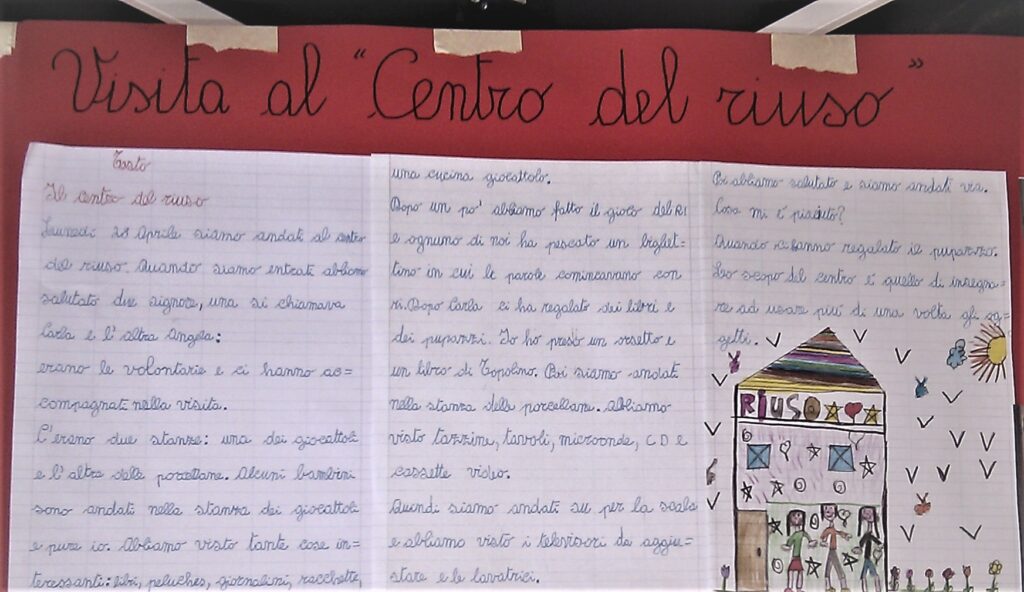 Visita al "Centro del riuso"
Testo
Il centro del riuso
Lunedì 28 Aprile siamo andati al centro
del riuso. Quando siamo entrati abbiamo
salutato due signore, una si chiamava
Carla e l'altra Angela:
erano le volontarie e ci hanno ac=
compagnati nella visita.
C'erano due stanze: una dei giocattoli
e l'altra delle porcellane. Alcuni bambini
sono andati nella stanza dei giocattoli
e pure io. Abbiamo visto tante cose in=
teressanti: libri, peluches, giornalini, racchette,
una cucina giocattolo.
Dopo un po' abbiamo fatto il gioco del RI
e ognuno di noi ha pescato un bigliet=
tino in cui le parole comincavano con
ri. Dopo Carla ci ha regalato dei libri e
dei pupazzi. Io ho preso un orsetto e
un libro di Topolino. Poi siamo andati
nella stanza delle porcellane. Abbiamo
visto tazzine, tavoli, microonde, CD e
cassette video.
Quindi siamo andati su per la scala
e abbiamo visto i televisori da aggiu=
stare e le lavatrici.
Poi abbiamo salutato e siamo andati via.
Cosa mi é piaciuto?
Quando ci hanno regalato il pupazzo.
Lo scopo del centro é quello di insegna=
re ad usare piú di una volta gli og=
getti.
RIUSO